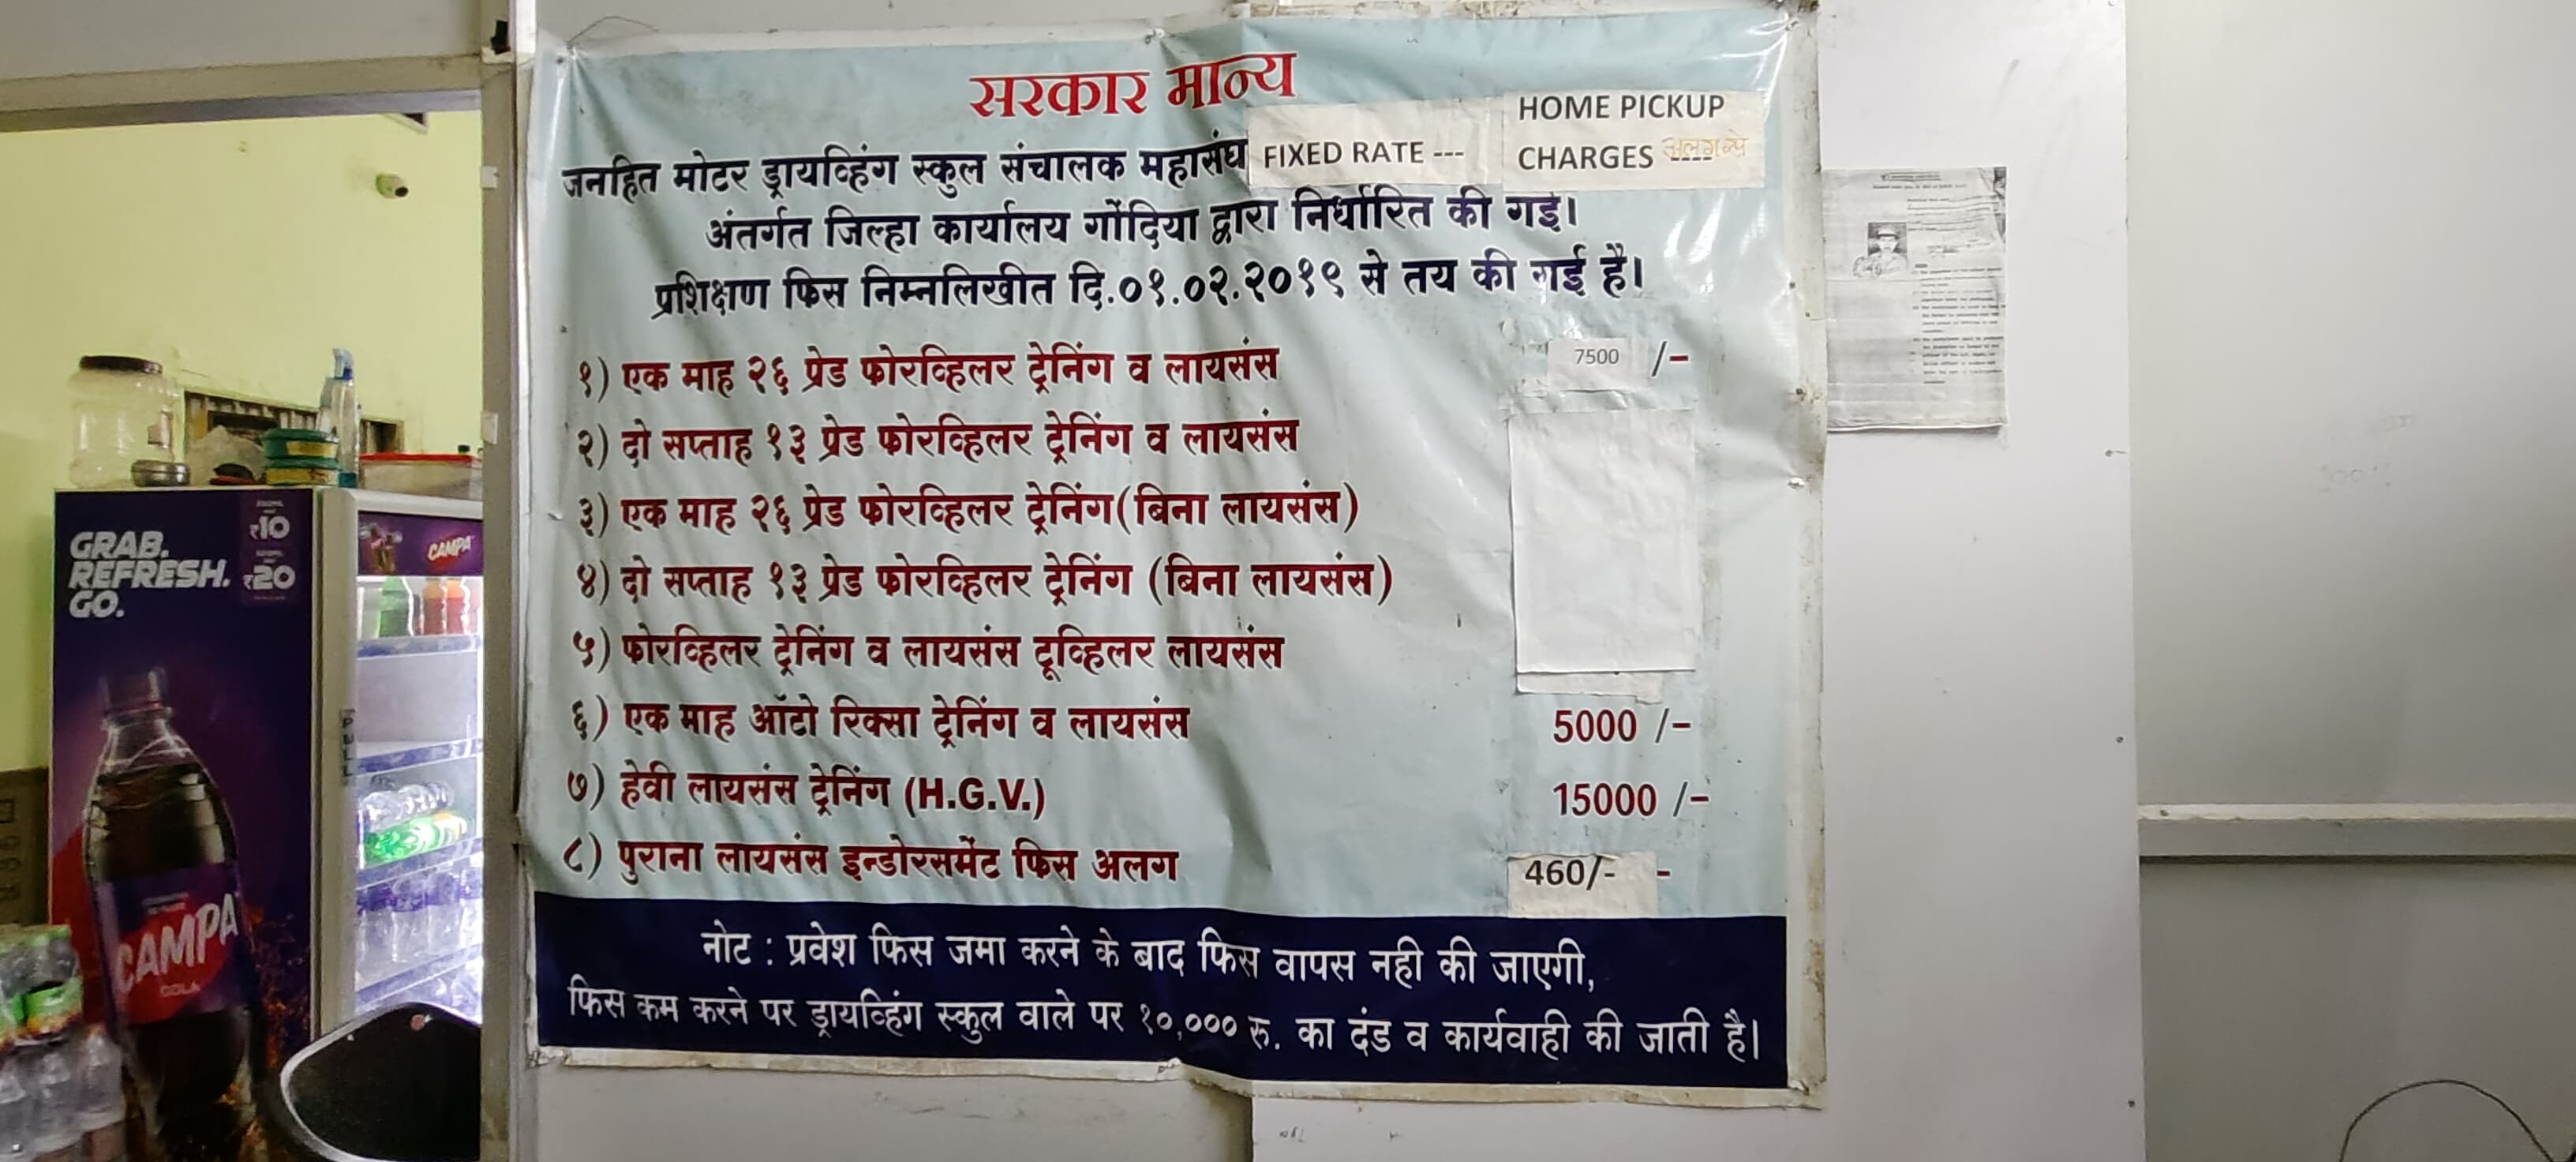 सरकार मान्य
जनहित मोटर ड्रायव्हिंग स्कुल संचालक महासंघ FIXED RATE ---
HOME PICKUP
CHARGES ----
अंतर्गत जिल्हा कार्यालय गोंदिया द्वारा निर्धारित की गई।
प्रशिक्षण फिस निम्नलिखीत दि.०१.०२.२०१९ से तय की गई है।
१) एक माह २६ प्रेड फोरव्हिलर ट्रेनिंग व लायसंस 7500 /-
२) दो सप्ताह १३ प्रेड फोरव्हिलर ट्रेनिंग व लायसंस
३) एक माह २६ प्रेड फोरव्हिलर ट्रेनिंग(बिना लायसंस)
४) दो सप्ताह १३ प्रेड फोरव्हिलर ट्रेनिंग (बिना लायसंस)
५) फोरव्हिलर ट्रेनिंग व लायसंस टूव्हिलर लायसंस
६) एक माह ऑटो रिक्सा ट्रेनिंग व लायसंस 5000 /-
७) हेवी लायसंस ट्रेनिंग (H.G.V.) 15000 /-
८) पुराना लायसंस इन्डोरसमेंट फिस अलग 460/- -
नोट : प्रवेश फिस जमा करने के बाद फिस वापस नही की जाएगी,
फिस कम करने पर ड्रायव्हिंग स्कुल वाले पर १०,००० रु. का दंड व कार्यवाही की जाती है।
GRAB.
REFRESH.
GO.
₹10
₹20
CAMPA
PULL
CAMPA
COLA